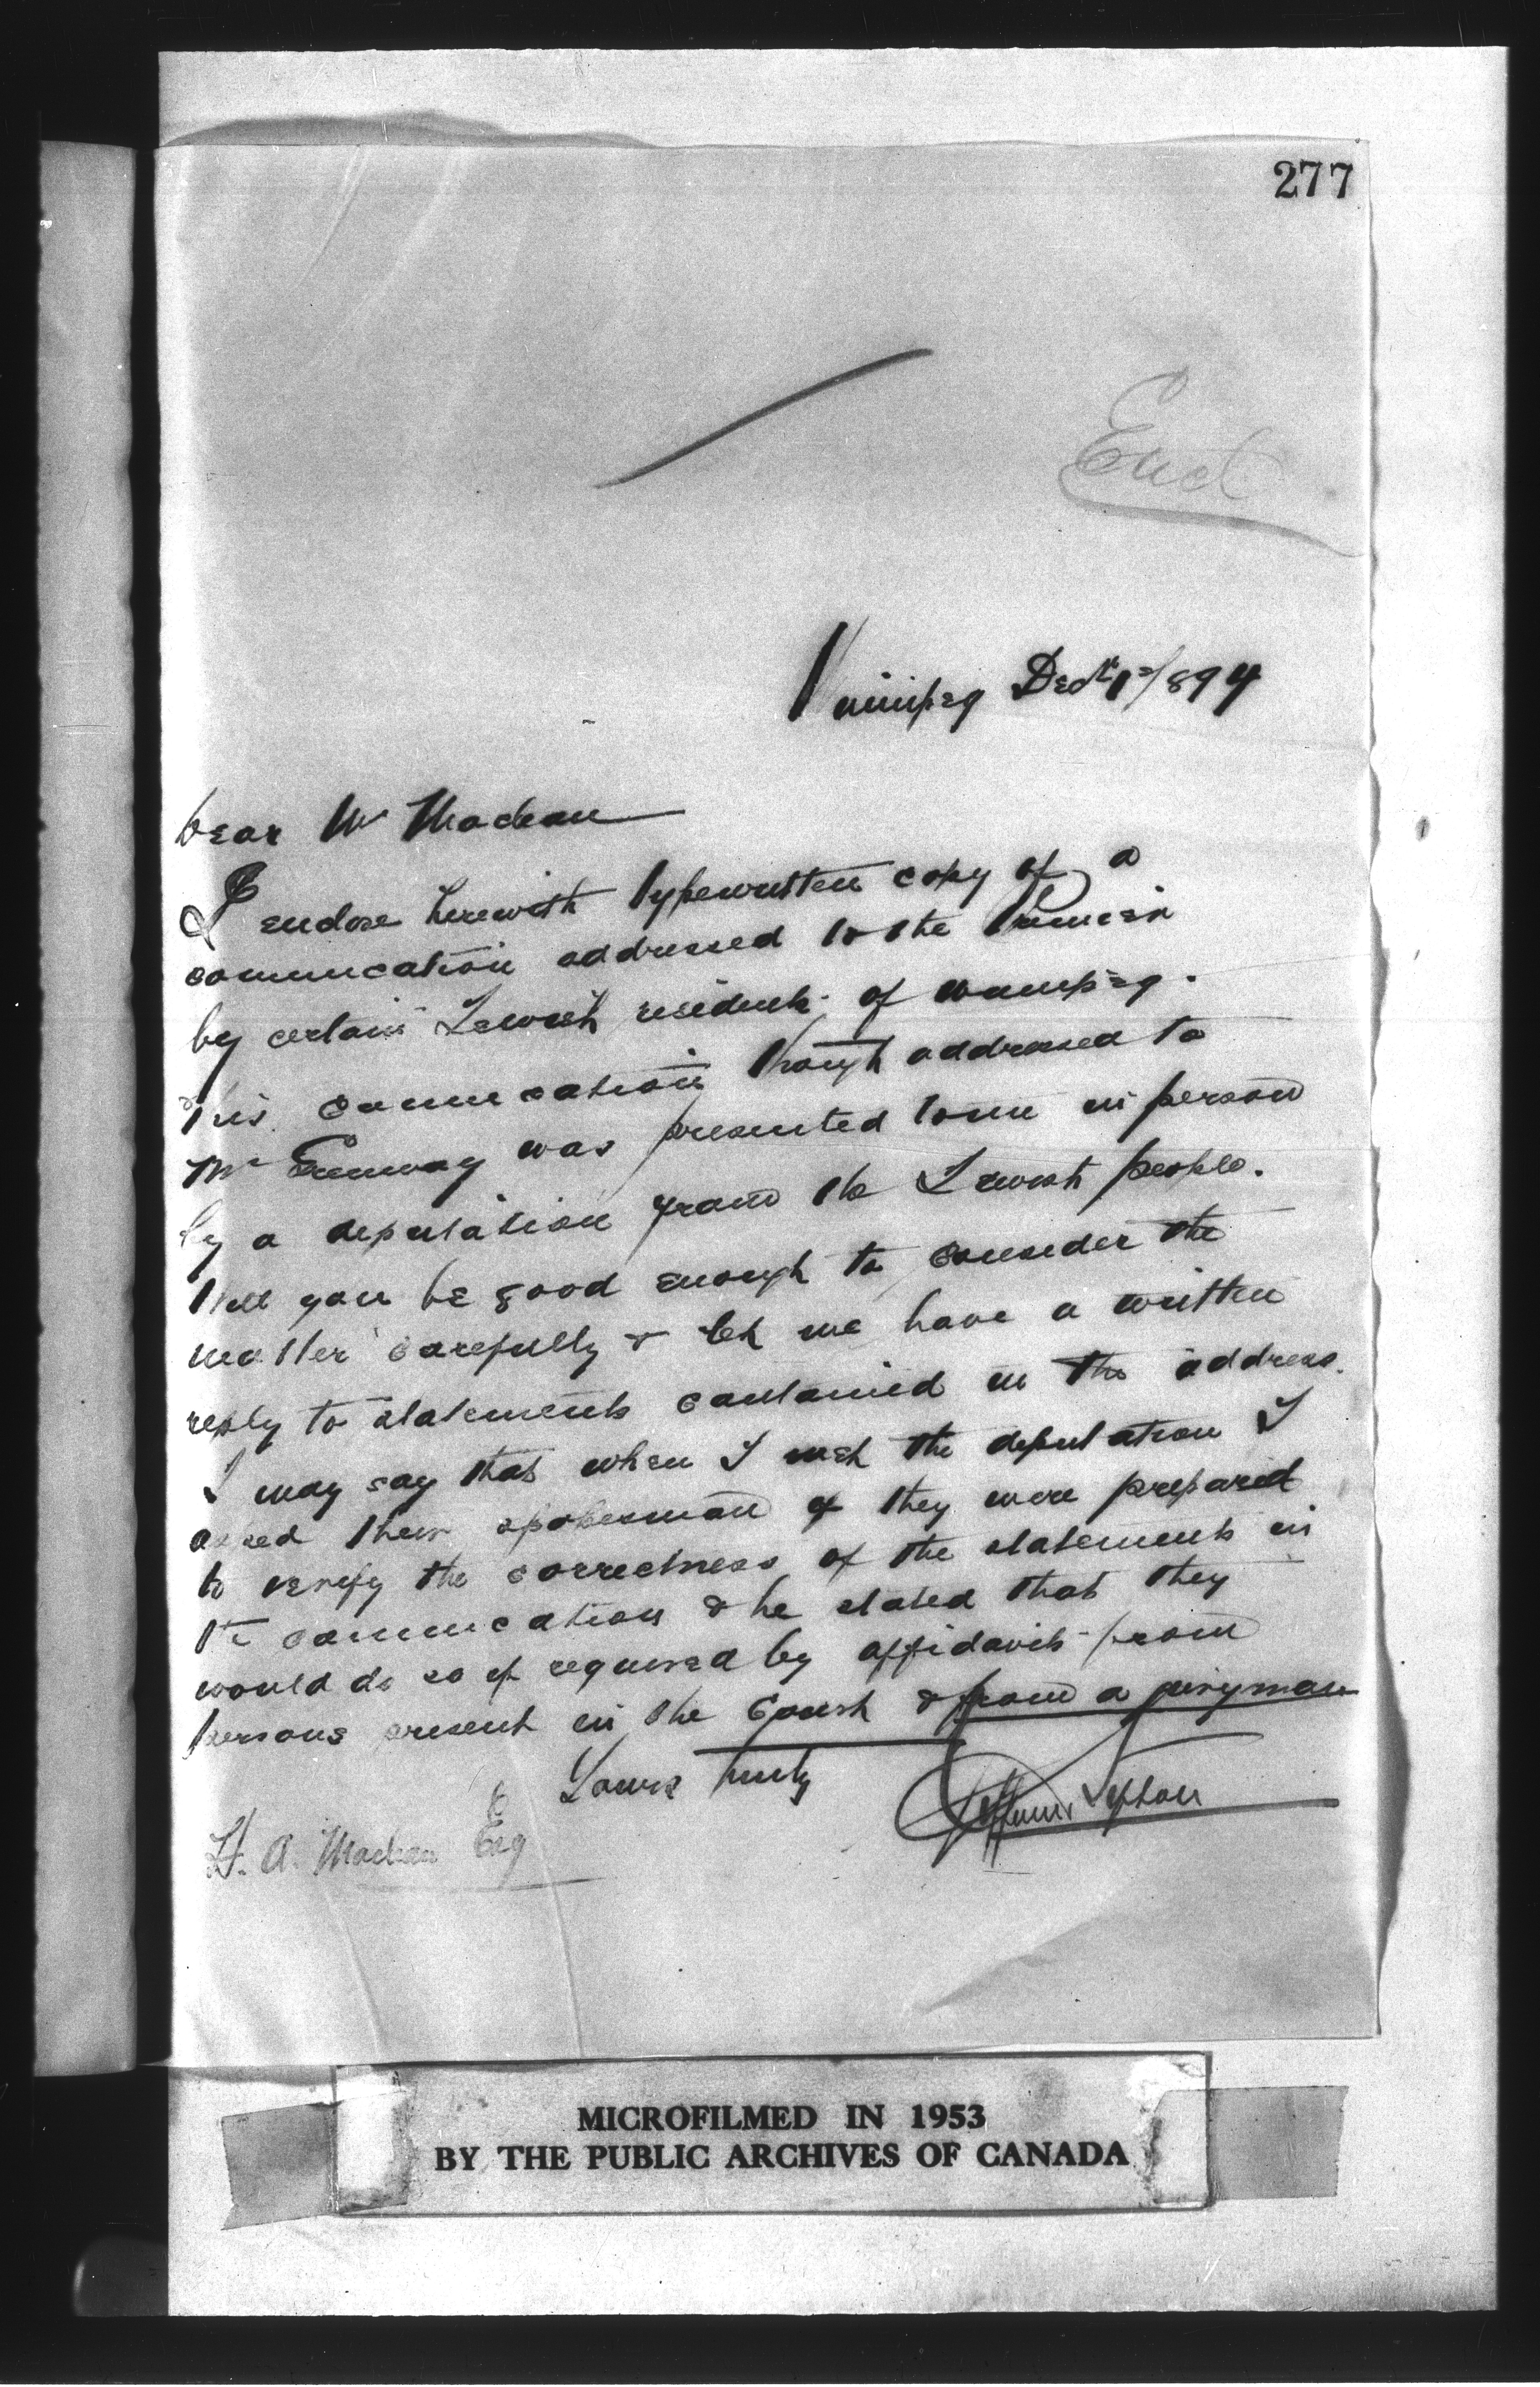 277
Encl
Winnipeg Dec 1st/894
Dear Mr Maclean
I enclose herewith typewritten copy of a
communcation addressed to the Premier
by certain Jewish residents of Winnipeg.
This communcation though addressed to
Mr Greenway was presented to me in person
by a deputation from the Jewish people.
Will you be good enough to consider the
matter carefully & let me have a written
reply to statements contained in the address.
I may say that when I met the deputation I
asked their spokesman if they were prepared
to verify the correctness of the statements in
the communcation & he stated that they
would do so if required by affidavits from
persons present in the Court & from a juryman
Yours truly
Clifford Sifton
H. A. Maclean Esq
MICROFILMED IN 1953
BY THE PUBLIC ARCHIVES OF CANADA